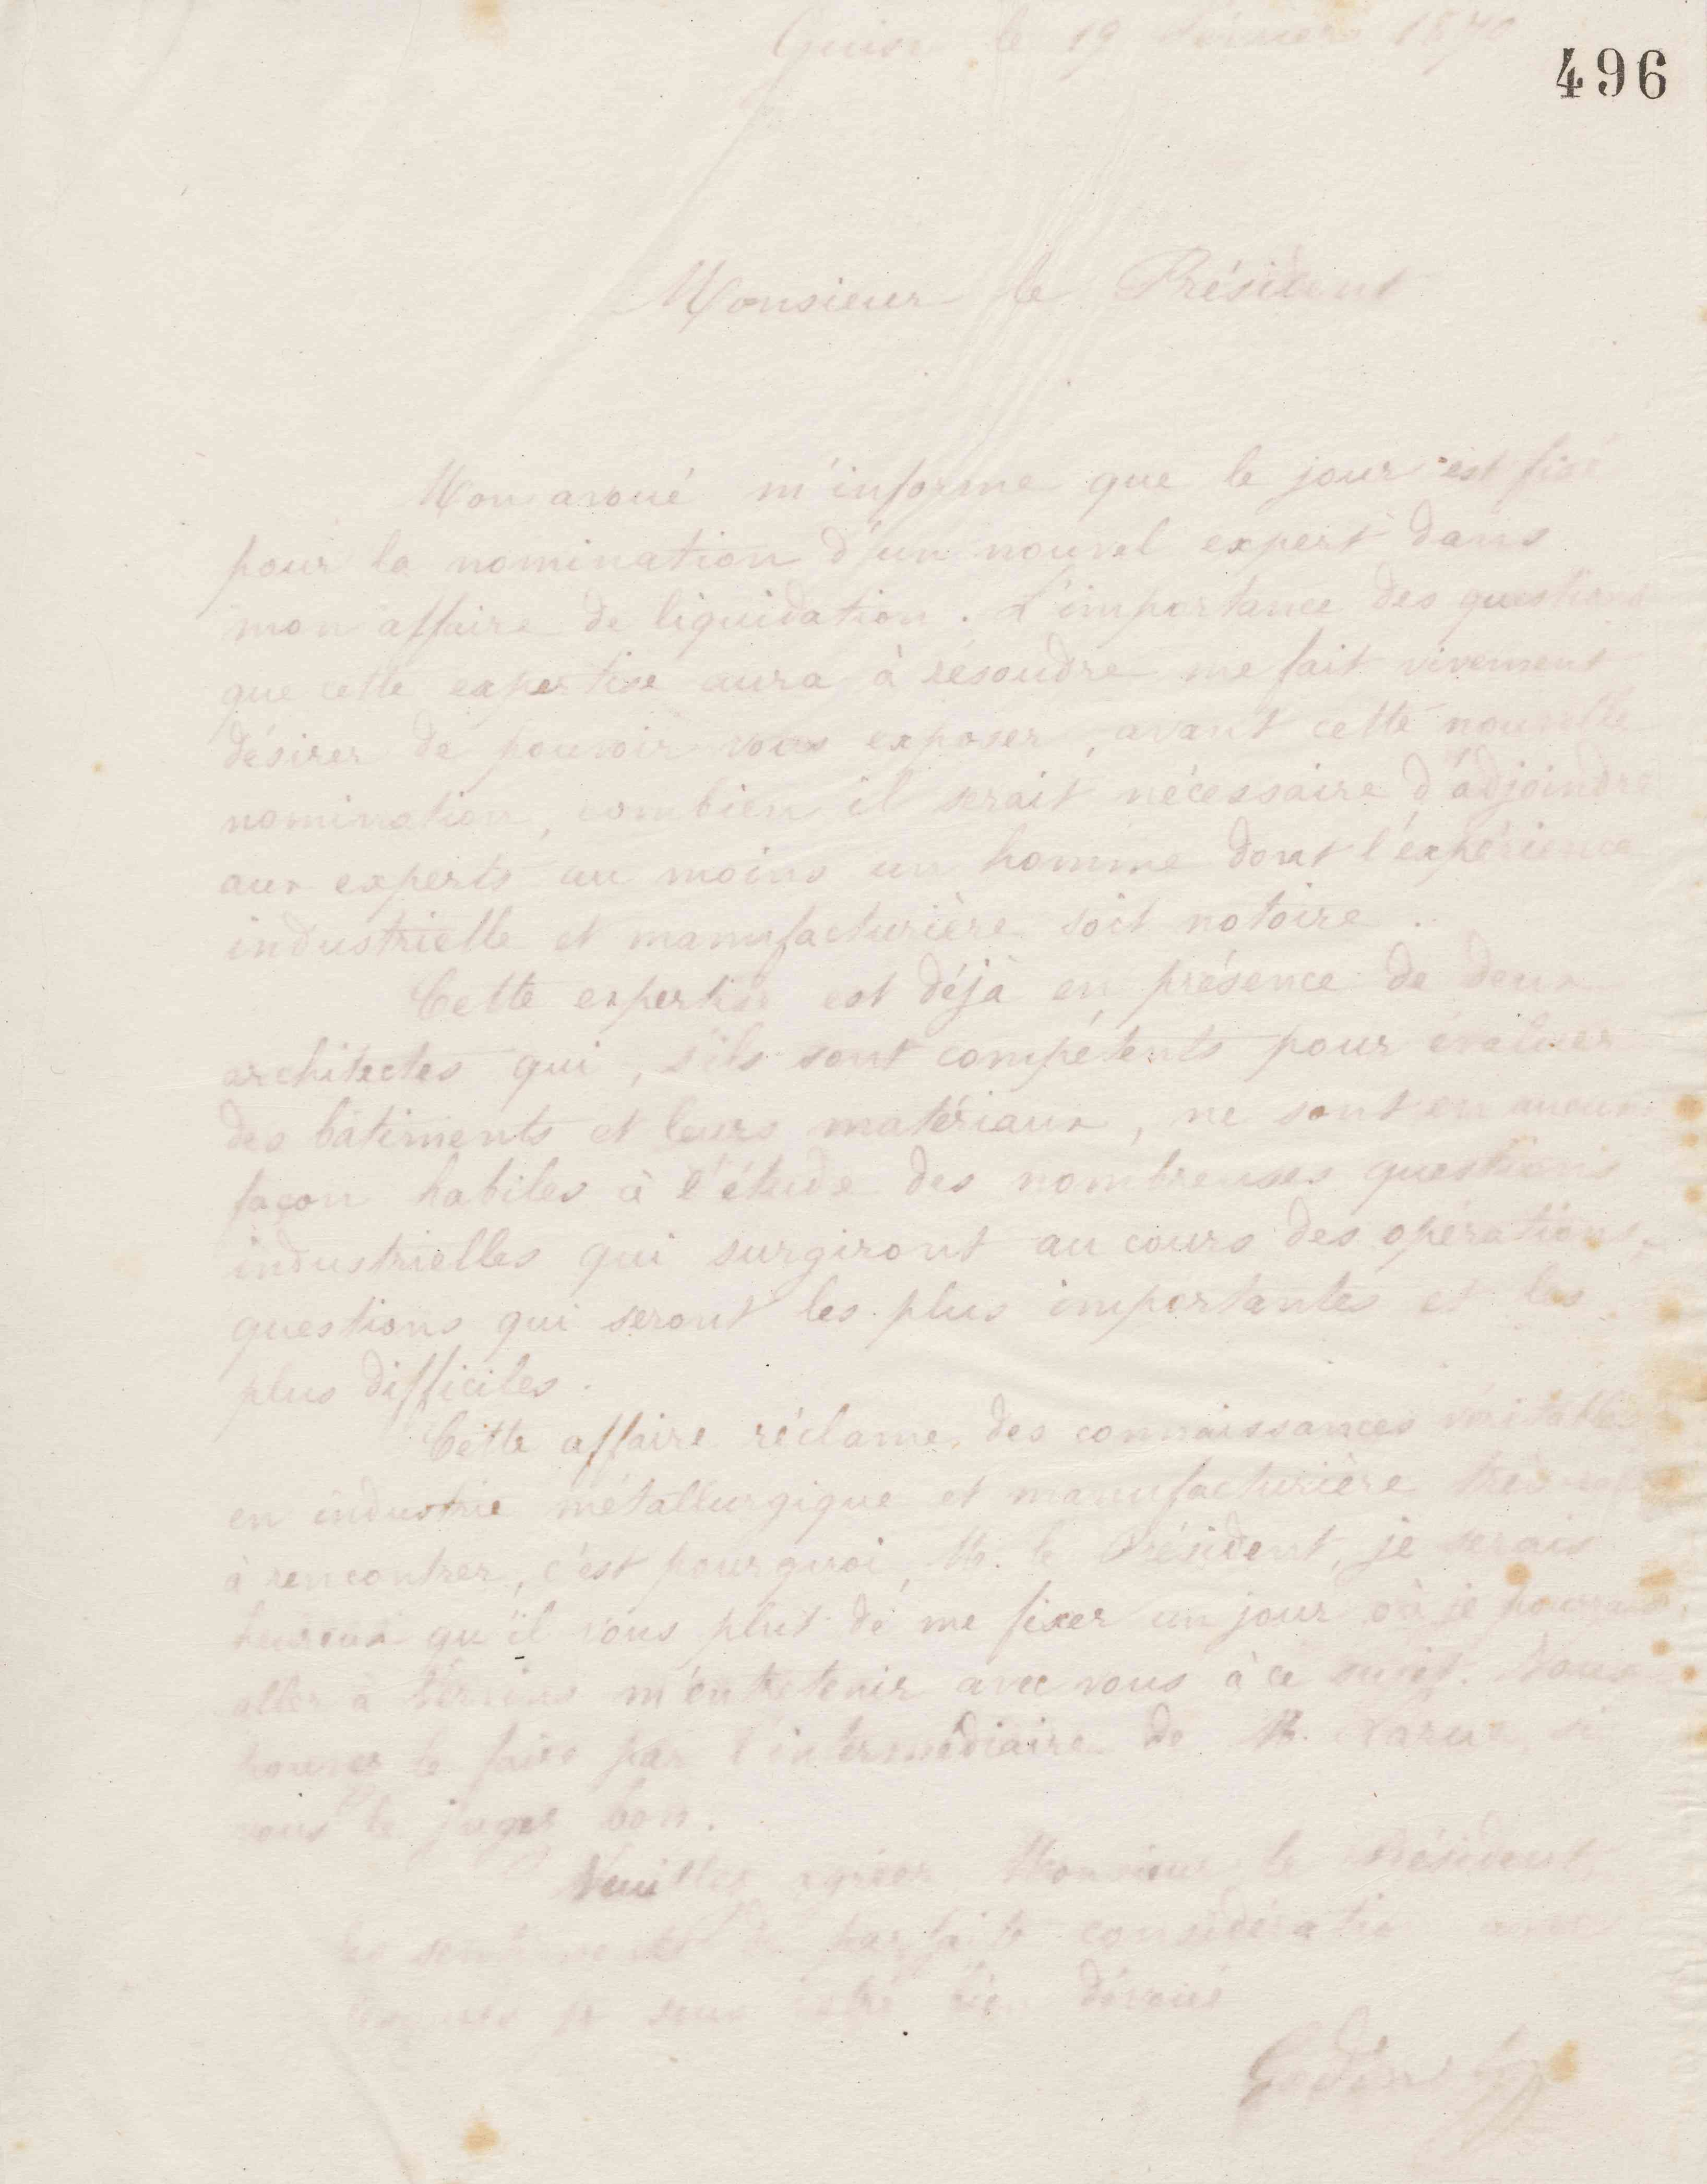 Guise le 19 février 1870
496
Monsieur le Président
Mon avoué m'informe que le jour est fixé
pour la nomination d'un nouvel expert dans
mon affaire de liquidation. L'importance des questions
que cette expertise aura à résoudre me fait vivement
désirer de pouvoir vous exposer, avant cette nouvelle
nomination, combien il serait nécessaire d'adjoindre
aux experts au moins un homme dont l'expérience
industrielle et manufacturière soit notoire.
Cette expertise est déjà en présence de deux
architectes qui, s'ils sont compétents pour évaluer
des bâtiments et leurs matériaux, ne sont en aucune
façon habiles à l'étude des nombreuses questions
industrielles qui surgiront au cours des opérations,
questions qui seront les plus importantes et les
plus difficiles.
Cette affaire réclame des connaissances véritables
en industrie métallurgique et manufacturière très
à rencontrer, c'est pourquoi, M. le Président, je serais
heureux qu'il vous plut de me fixer un jour où je pourrais
aller à Vervins m'entretenir avec vous à ce sujet. Vous
pouvez le faire par l'intermédiaire de M. Larue, si
vous le jugez bon.
Veuillez agréer Monsieur le Président
les sentiments de parfaite considération avec
lesquels je suis votre bien dévoué
Godin